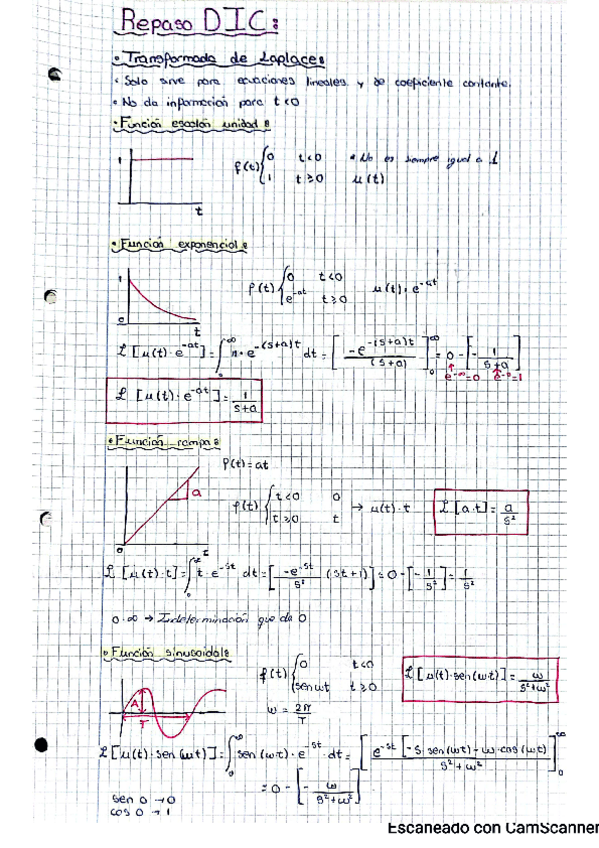 Repaso DIC:
• Transformada de Laplace:
• Solo sirve para ecuaciones lineales y de coeficiente contante.
• No da información para t<0
• Función escalón unidad:
1
f(t) { 0 t<0 • No es siempre igual a 1
1 t≥0 u(t)
t
• Función exponencial:
1
f(t) { 0 t<0
e^-at t≥0 u(t)·e^-at
0
t
ℒ[u(t)·e^-at] = ∫₀^∞ e^-(s+a)t dt = [ -e^-(s+a)t / (s+a) ]₀^∞ = 0 - [ - 1/(s+a) ]
e^-∞=0 e^-0=1
ℒ[u(t)·e^-at] = 1/(s+a)
• Función rampa:
f(t)=at
a
f(t) { t<0 0
t≥0 t → u(t)·t
ℒ[a·t] = a/s²
0
t
ℒ[u(t)·t] = ∫₀^∞ t·e^-st dt = [ -e^-st/s² (st+1) ] = 0 - [ - 1/s² ] = 1/s²
0·∞ → Indeterminación que da 0
• Función sinusoidal:
f(t) { 0 t<0
sen wt t≥0
ℒ[u(t)·sen(wt)] = w/(s²+w²)
w = 2π/T
A
T
ℒ[u(t)·sen(wt)] = ∫₀^∞ sen(wt)·e^-st·dt = [ e^-st [-s·sen(wt) - w·cos(wt)] / (s²+w²) ]₀^∞
= 0 - [ - w/(s²+w²) ]
sen 0 → 0
cos 0 → 1
Escaneado con CamScanner